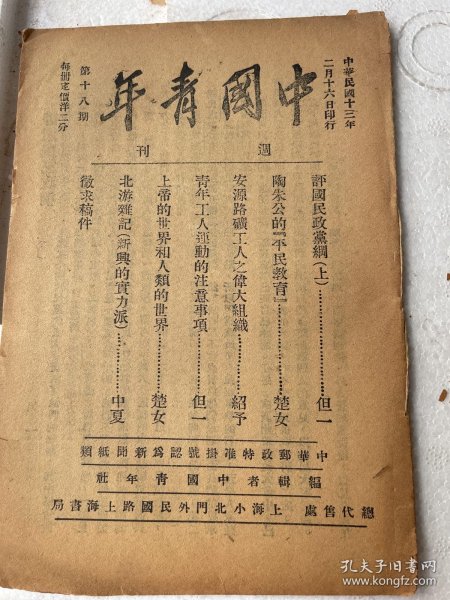 中華民國十三年
二月十六日印行
中國青年
週刊
第十八期
每冊定價洋二分
評國民政黨綱（上）…………但一
陶朱公的『平民教育』…………楚女
安源路礦工人之偉大組織…………紹予
青年工人運動的注意事項…………但一
上帝的世界和人類的世界…………楚女
北游雜記（新興的實力派）…………中夏
徵求稿件
中華郵政特准掛號認為新聞紙類
編輯者中國青年社
總代售處上海小北門外民國路上海書局
孔夫子旧书网
book.kongfz.com